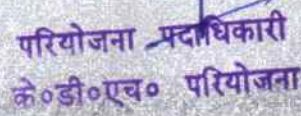 परियोजना पदाधिकारी
के०डी०एच० परियोजना